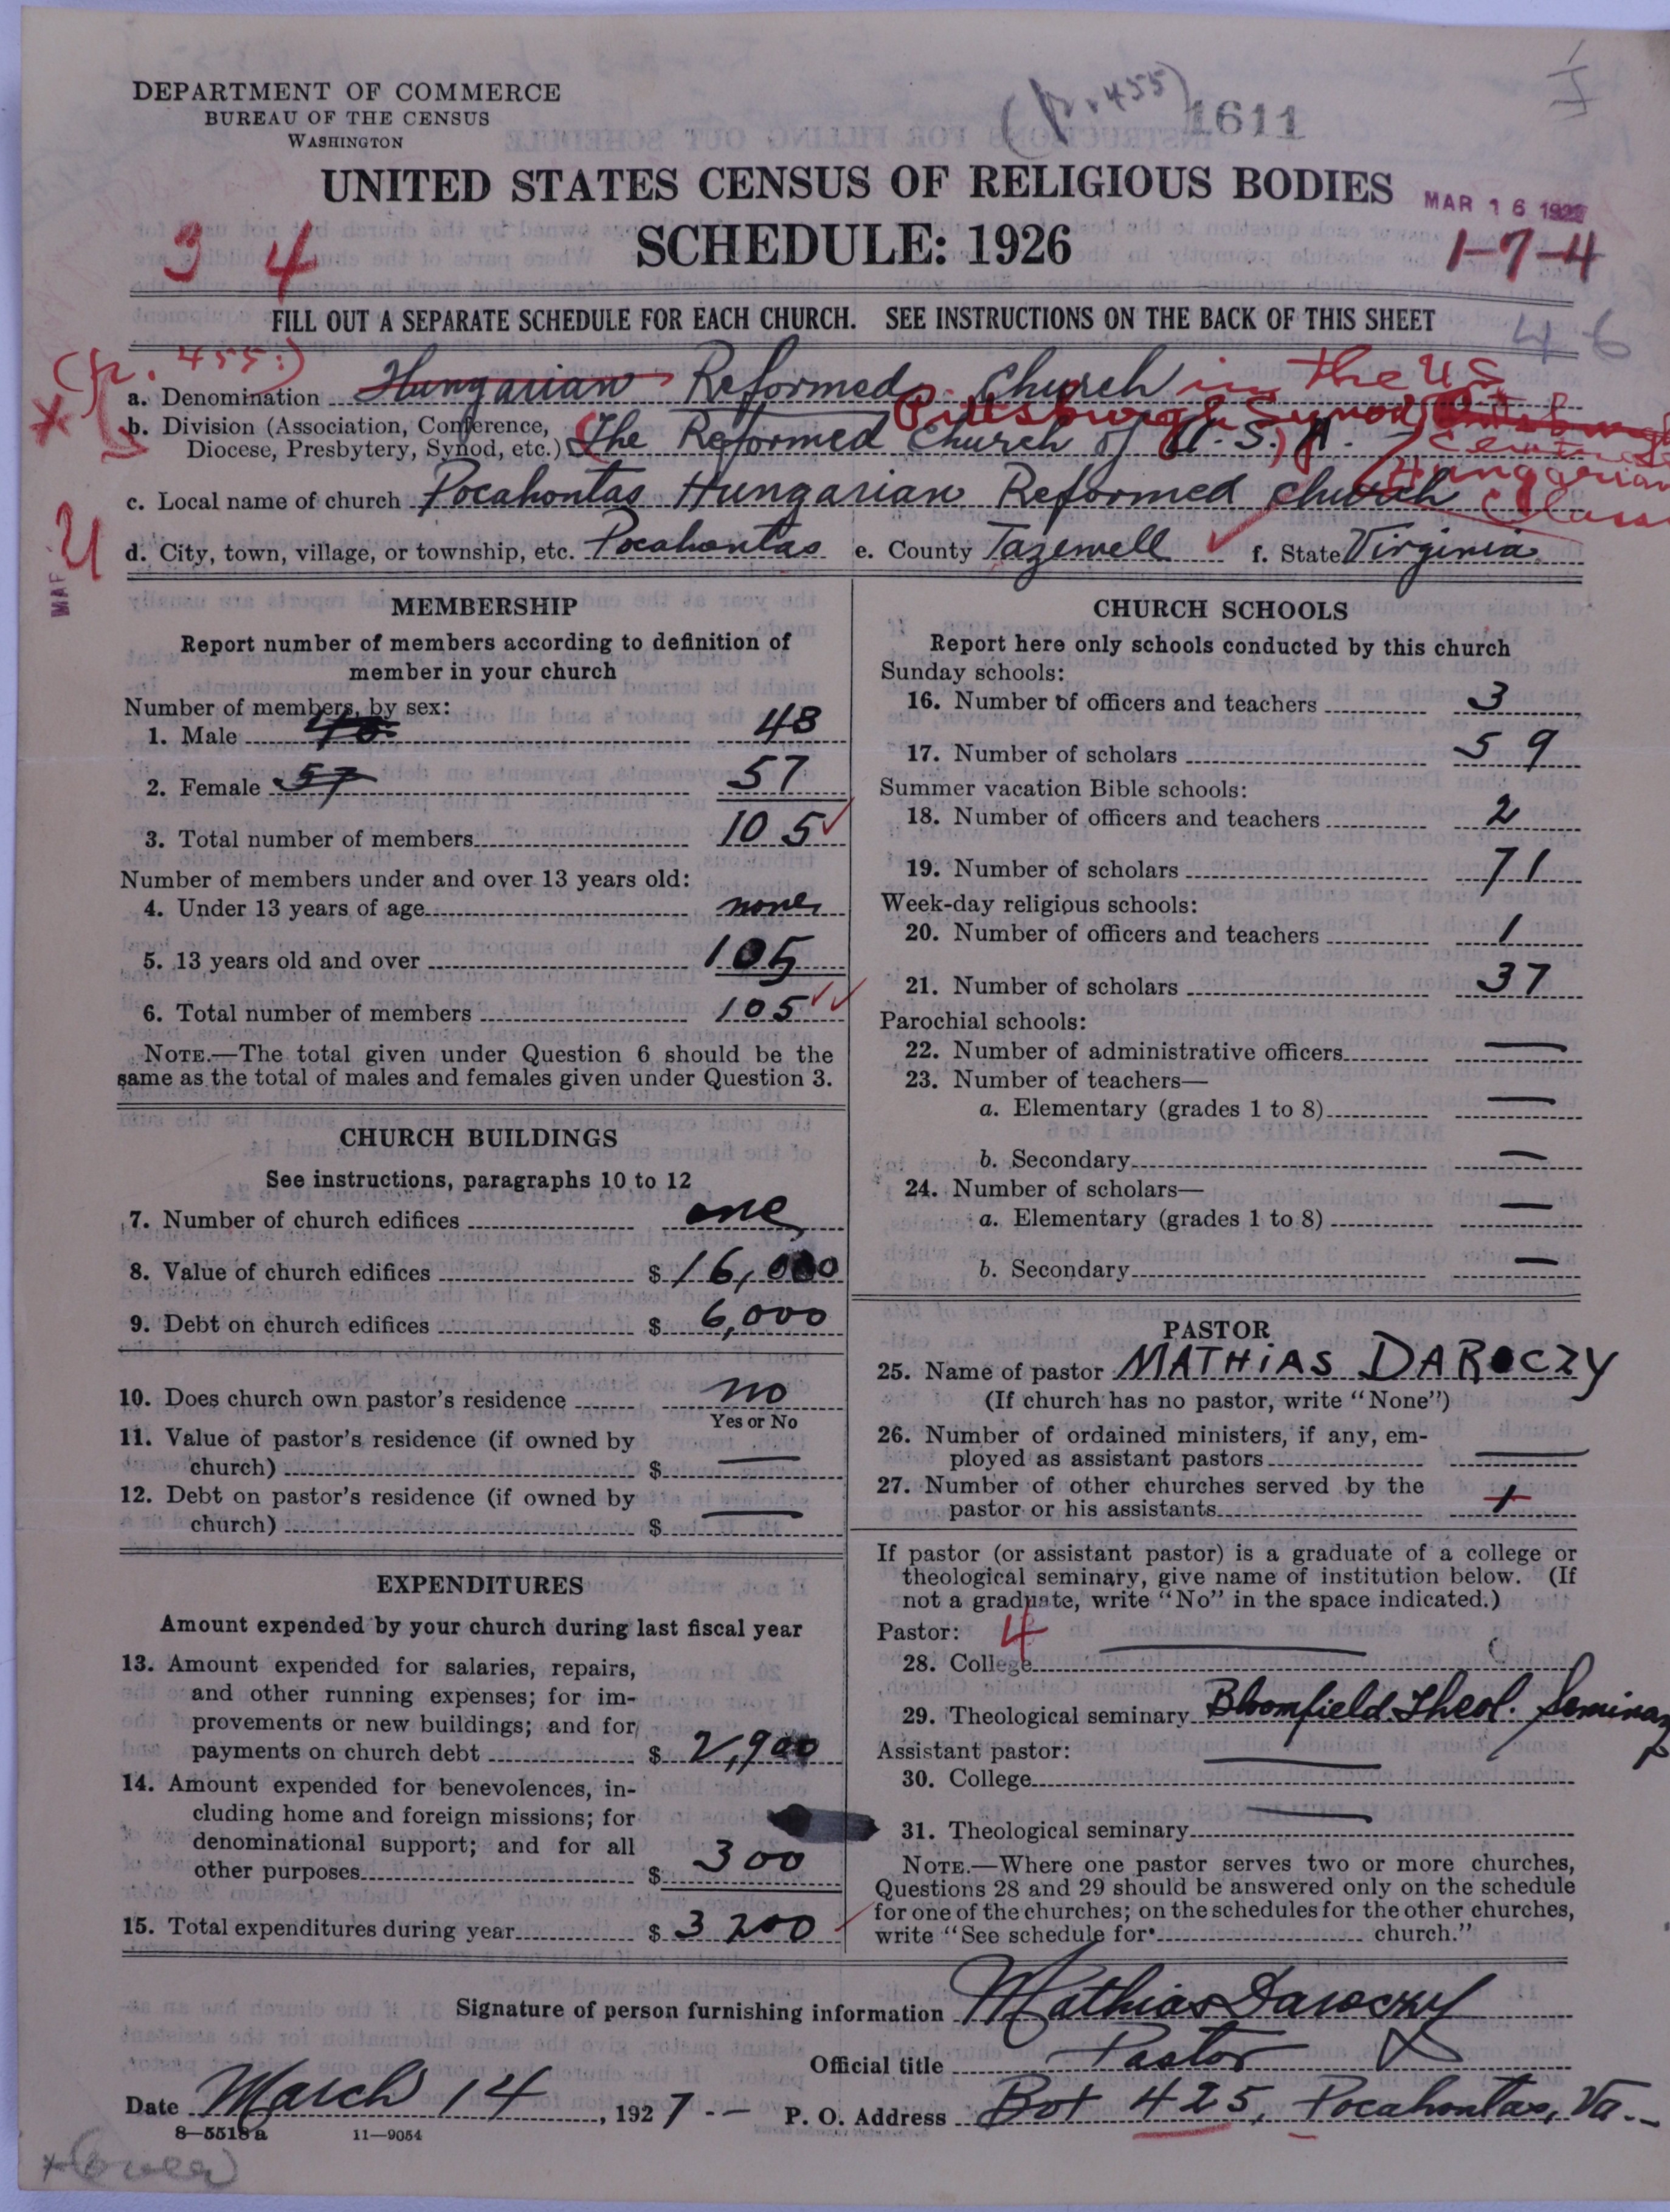 DEPARTMENT OF COMMERCE
BUREAU OF THE CENSUS
WASHINGTON
(p. 455) 1611
UNITED STATES CENSUS OF RELIGIOUS BODIES
MAR 16 192
3 4 SCHEDULE: 1926 1-7-4
FILL OUT A SEPARATE SCHEDULE FOR EACH CHURCH. SEE INSTRUCTIONS ON THE BACK OF THIS SHEET
46
(p. 455.)
a. Denomination Hungarian Reformed Church in the US
Pittsburgh Synod
b. Division (Association, Conference,
Diocese, Presbytery, Synod, etc.) (The Reformed Church of U. S. A.)
Central Hungarian Classis
c. Local name of church Pocahontas Hungarian Reformed church
d. City, town, village, or township, etc. Pocahontas e. County Tazewell ✓ f. State Virginia
MEMBERSHIP
Report number of members according to definition of
member in your church
Number of members, by sex:
1. Male 48 48
2. Female 57 57
3. Total number of members 105 ✓
Number of members under and over 13 years old:
4. Under 13 years of age none
5. 13 years old and over 105
6. Total number of members 105 ✓✓
NOTE.—The total given under Question 6 should be the
same as the total of males and females given under Question 3.
CHURCH BUILDINGS
See instructions, paragraphs 10 to 12
7. Number of church edifices one
8. Value of church edifices $ 16,000
9. Debt on church edifices $ 6,000
10. Does church own pastor's residence no
Yes or No
11. Value of pastor's residence (if owned by
church) $ —
12. Debt on pastor's residence (if owned by
church) $ —
EXPENDITURES
Amount expended by your church during last fiscal year
13. Amount expended for salaries, repairs,
and other running expenses; for im-
provements or new buildings; and for
payments on church debt $ 2,900
14. Amount expended for benevolences, in-
cluding home and foreign missions; for
denominational support; and for all
other purposes $ 300
15. Total expenditures during year $ 3200
CHURCH SCHOOLS
Report here only schools conducted by this church
Sunday schools:
16. Number of officers and teachers 3
17. Number of scholars 59
Summer vacation Bible schools:
18. Number of officers and teachers 2
19. Number of scholars 71
Week-day religious schools:
20. Number of officers and teachers 1
21. Number of scholars 37
Parochial schools:
22. Number of administrative officers —
23. Number of teachers—
a. Elementary (grades 1 to 8) —
b. Secondary —
24. Number of scholars—
a. Elementary (grades 1 to 8) —
b. Secondary —
PASTOR
25. Name of pastor MATHIAS DAROCZY
(If church has no pastor, write "None")
26. Number of ordained ministers, if any, em-
ployed as assistant pastors —
27. Number of other churches served by the
pastor or his assistants
If pastor (or assistant pastor) is a graduate of a college or
theological seminary, give name of institution below. (If
not a graduate, write "No" in the space indicated.)
Pastor: 4
28. College —
29. Theological seminary Bloomfield Theol. Seminary
Assistant pastor:
30. College —
31. Theological seminary —
NOTE.—Where one pastor serves two or more churches,
Questions 28 and 29 should be answered only on the schedule
for one of the churches; on the schedules for the other churches,
write "See schedule for church."
Signature of person furnishing information Mathias Daroczy
Official title Pastor
Date March 14, 1927 -- P. O. Address Box 425, Pocahontas, Va.
8—5518 a 11—9054